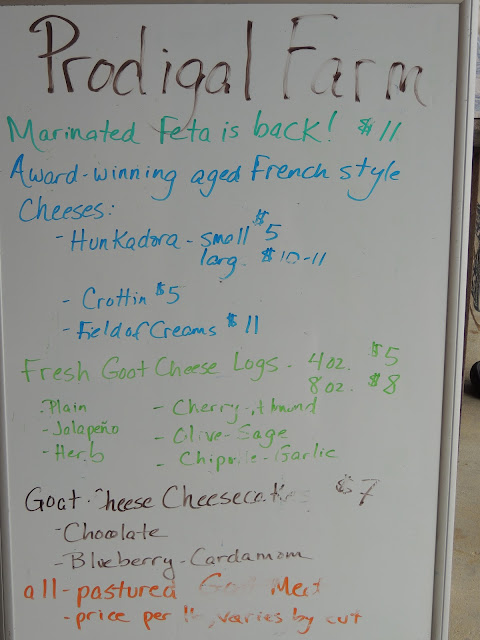 Prodigal Farm
Marinated Feta is back! $11
Award-winning aged French style
Cheeses:
- Hunkadora - small $5
larg. $10-11
- Crottin $5
- Field of Creams $11
Fresh Goat Cheese Logs. 4oz. $5
8oz. $8
. Plain - Cherry-
- Jalapeño - Olive-Sage
- Herb - Chipotle-Garlic
Goat Cheese Cheesecakes $7
- Chocolate
- Blueberry-Cardamom
all-pastured Goat Meat
- price per lb, varies by cut